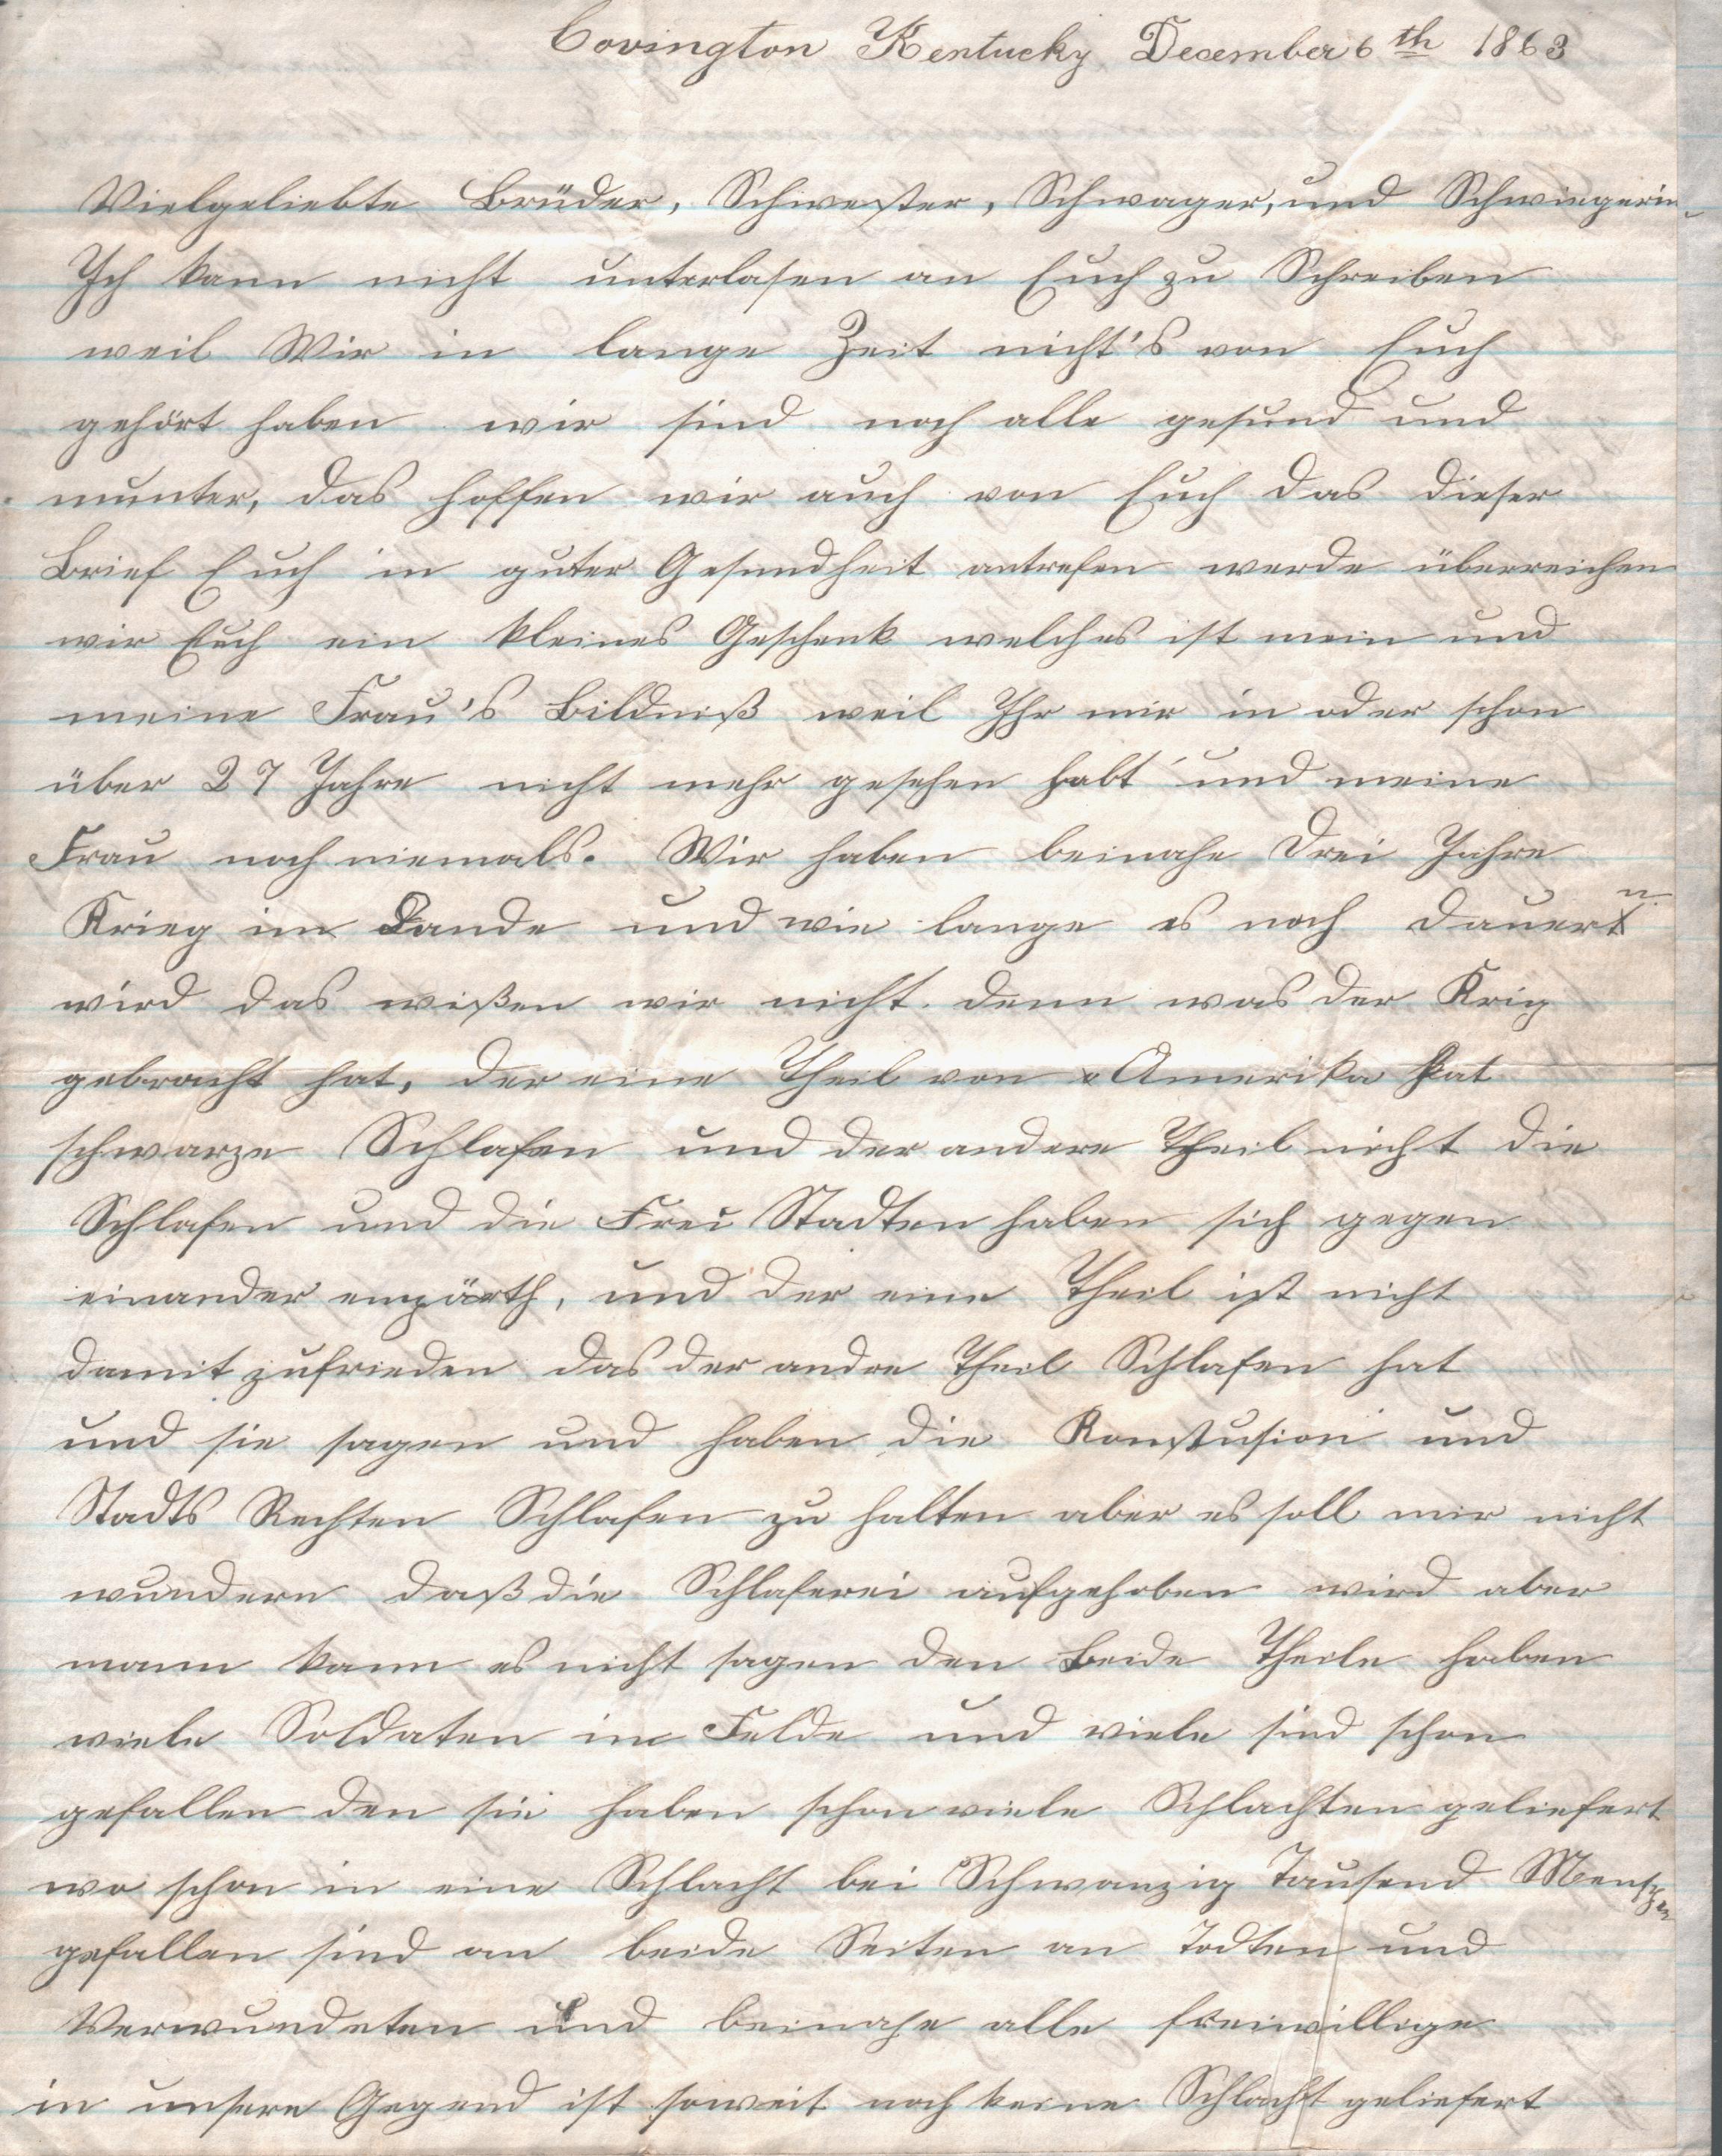 Covington Kentucky December 6th 1863
Vielgeliebte Brüder, Schwester, Schwager, und Schwiegerin
Ich kann nicht unterlasen an Euch zu Schreiben
weil Wir in lange Zeit nicht's von Euch
gehört haben wir sind noch alle gesund und
munter, das hoffen wir auch von Euch das dieser
Brief Euch in guter Gesundheit antrefen werde überreichen
wir Euch ein kleines Geschenk welches ist mein und
meine Frau's Bildniß weil Ihr mir in oder schon
über 27 Jahre nicht mehr gesehen habt und meine
Frau noch niemals. Wir haben beinahe Drei Jahre
Krieg im Lande und wie lange es noch dauern
wird das wißen wir nicht. denn was der Krig
gebracht hat, der eine Theil von Amerika hat
schwarze Schlafen und der andere Theil nicht die
Schlafen und die Frei Stadten haben sich gegen
einander empärth, und der eine Theil ist nicht
damit zufrieden das der andre Theil Schlafen hat
und sie sagen und haben die Konstusion und
Stadts Rechten Schlafen zu halten aber es soll mir nicht
wundern daß die Schlaferei aufgehoben wird aber
mann kann es nicht sagen den Beide Theile haben
viele Soldaten im Felde und viele sind schon
gefallen den sie haben schon viele Schlachten geliefert
wo schon in eine Schlacht bei Schwanzig Tausend Menschen
gefallen sind an beide Seiten an Todten und
Verwundeten und beinahe alle freiwillige
in unsere Gegend ist soweit noch keine Schlacht geliefert